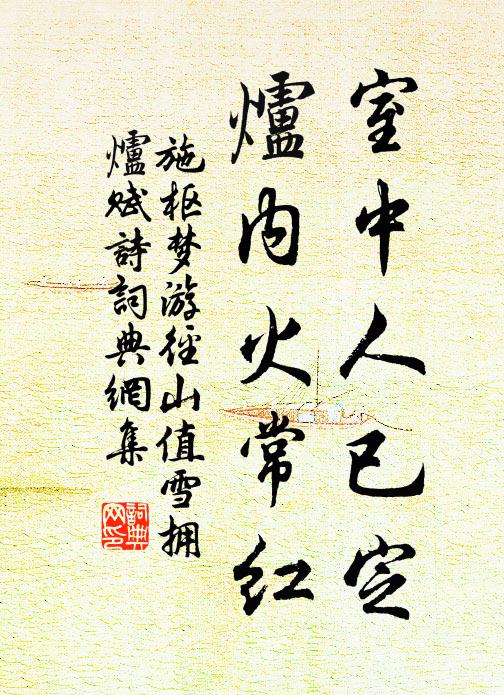 室中人已定
爐内火常红
施枢梦游径山值雪拥
爐赋詩詞典網集
詞典网印